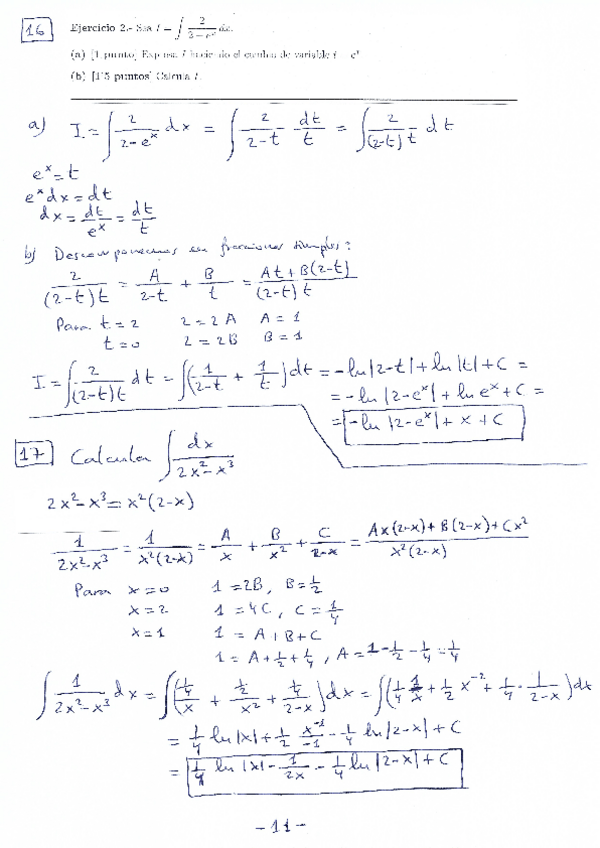 16 Ejercicio 2.- Sea I = ∫ 2/(3-eˣ) dx.
(a) [1 punto] Expresa I haciendo el cambio de variable t = eˣ
(b) [1'5 puntos] Calcula I.
a) I = ∫ 2/(2-eˣ) dx = ∫ 2/(2-t) dt/t = ∫ 2/((2-t)t) dt
eˣ = t
eˣdx = dt
dx = dt/eˣ = dt/t
b) Descomponemos en fracciones simples:
2/((2-t)t) = A/(2-t) + B/t = (At+B(2-t))/((2-t)t)
Para t=2 2=2A A=1
t=0 2=2B B=1
I = ∫ 2/((2-t)t) dt = ∫(1/(2-t) + 1/t)dt = -ln|2-t|+ln|t|+C =
= -ln|2-eˣ|+ln eˣ+C =
= -ln|2-eˣ|+x+C
17 Calcula ∫ dx/(2x²-x³)
2x²-x³ = x²(2-x)
1/(2x²-x³) = 1/(x²(2-x)) = A/x + B/x² + C/(2-x) = (Ax(2-x)+B(2-x)+Cx²)/(x²(2-x))
Para x=0 1=2B, B=1/2
x=2 1=4C, C=1/4
x=1 1=A+B+C
1=A+1/2+1/4, A=1-1/2-1/4=1/4
∫ 1/(2x²-x³) dx = ∫((1/4)/x + (1/2)/x² + (1/4)/(2-x))dx = ∫(1/4 1/x + 1/2 x⁻² + 1/4 · 1/(2-x))dx
= 1/4 ln|x| + 1/2 x⁻¹/-1 - 1/4 ln|2-x|+C
= 1/4 ln|x| - 1/2x - 1/4 ln|2-x|+C
-11-